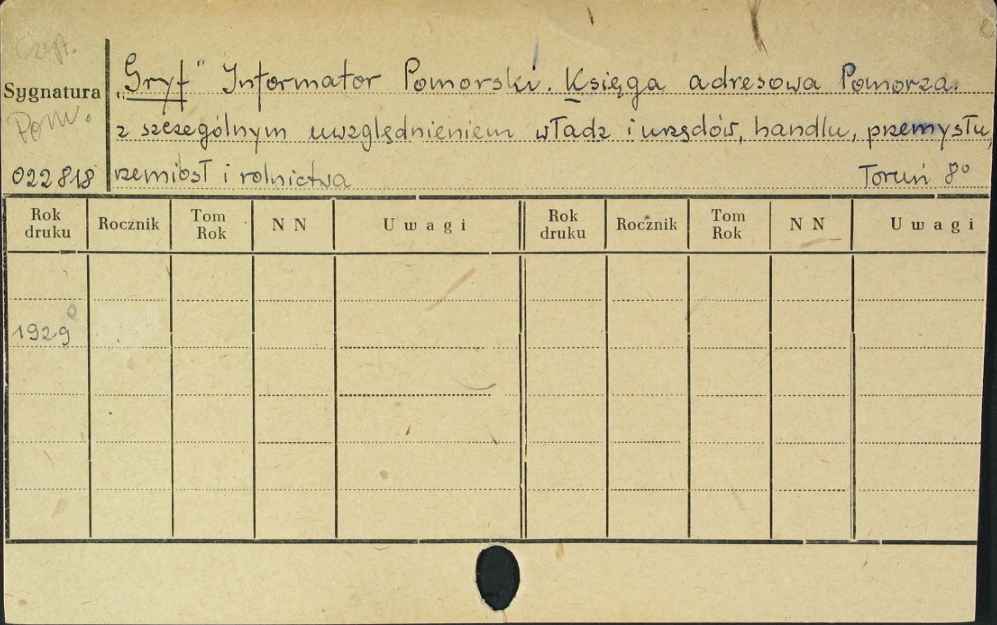 Czyt.
„Gryf" Informator Pomorski. Księga adresowa Pomorza.
Sygnatura
Pom.
z szczególnym uwzględnieniem władz i urzędów, handlu, przemysłu,
022818 rzemiosł i rolnictwa Toruń 8°
Rok druku Rocznik Tom Rok N N Uwagi Rok druku Rocznik Tom Rok N N Uwagi
1929